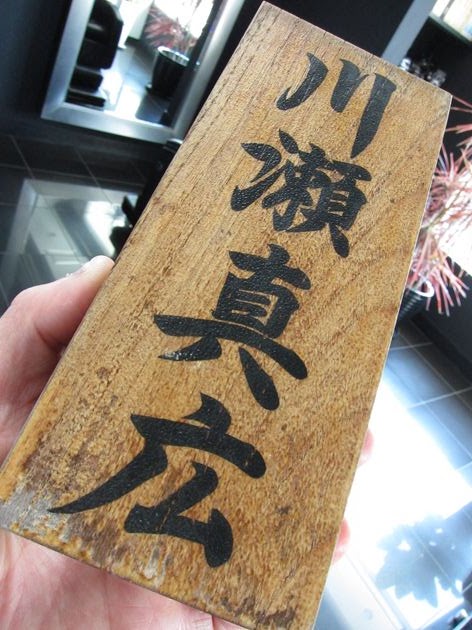 川瀬真広